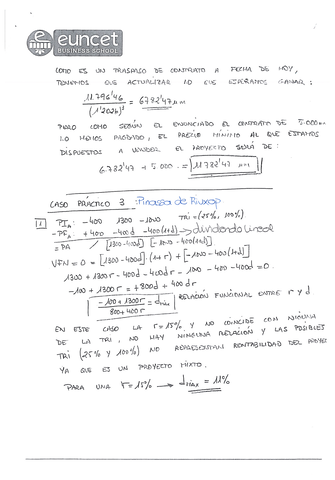 euncet
BUSINESS SCHOOL
COMO ES UN TRASPASO DE CONTRATO A FECHA DE HOY,
TENEMOS QUE ACTUALIZAR LO QUE ESPERAMOS GANAR:
11.796'46 / (1'2026)³ = 6782'47 u.m
PERO COMO SEGÚN EL ENUNCIADO EL CONTRATO DE 5.000
LO HEMOS PAGADO, EL PRECIO MÍNIMO AL QUE ESTAMOS
DISPUESTOS A VENDER EL PROYECTO SERÁ DE:
6.782'47 + 5.000 = 11.782'47 u.m
CASO PRÁCTICO 3:
1 PI_A -400 1300 -1000 TRI = (25%, 100%)
-PF_A +400 -400d -400(1+d) → dividendo lineal
= PA [1300-400d] [-1000-400(1+d)]
VFN = 0 = [1300-400d]·(1+r) + [-1000-400(1+d)]
1300 + 1300r - 400d - 400dr - 1000 - 400 - 400d = 0
-100 + 1300r = +800d + 400dr
-100 + 1300r / 800 + 400r = dmáx RELACIÓN FUNCIONAL ENTRE r y d
EN ESTE CASO LA r = 15% Y NO COINCIDE CON NINGUNA
DE LA TRI, NO HAY NINGUNA RELACIÓN Y LAS POSIBLES
TRI (25% Y 100%) NO REPRESENTAN RENTABILIDAD DEL PROYEC
YA QUE ES UN PROYECTO MIXTO.
PARA UNA r = 15% → dmáx = 11%